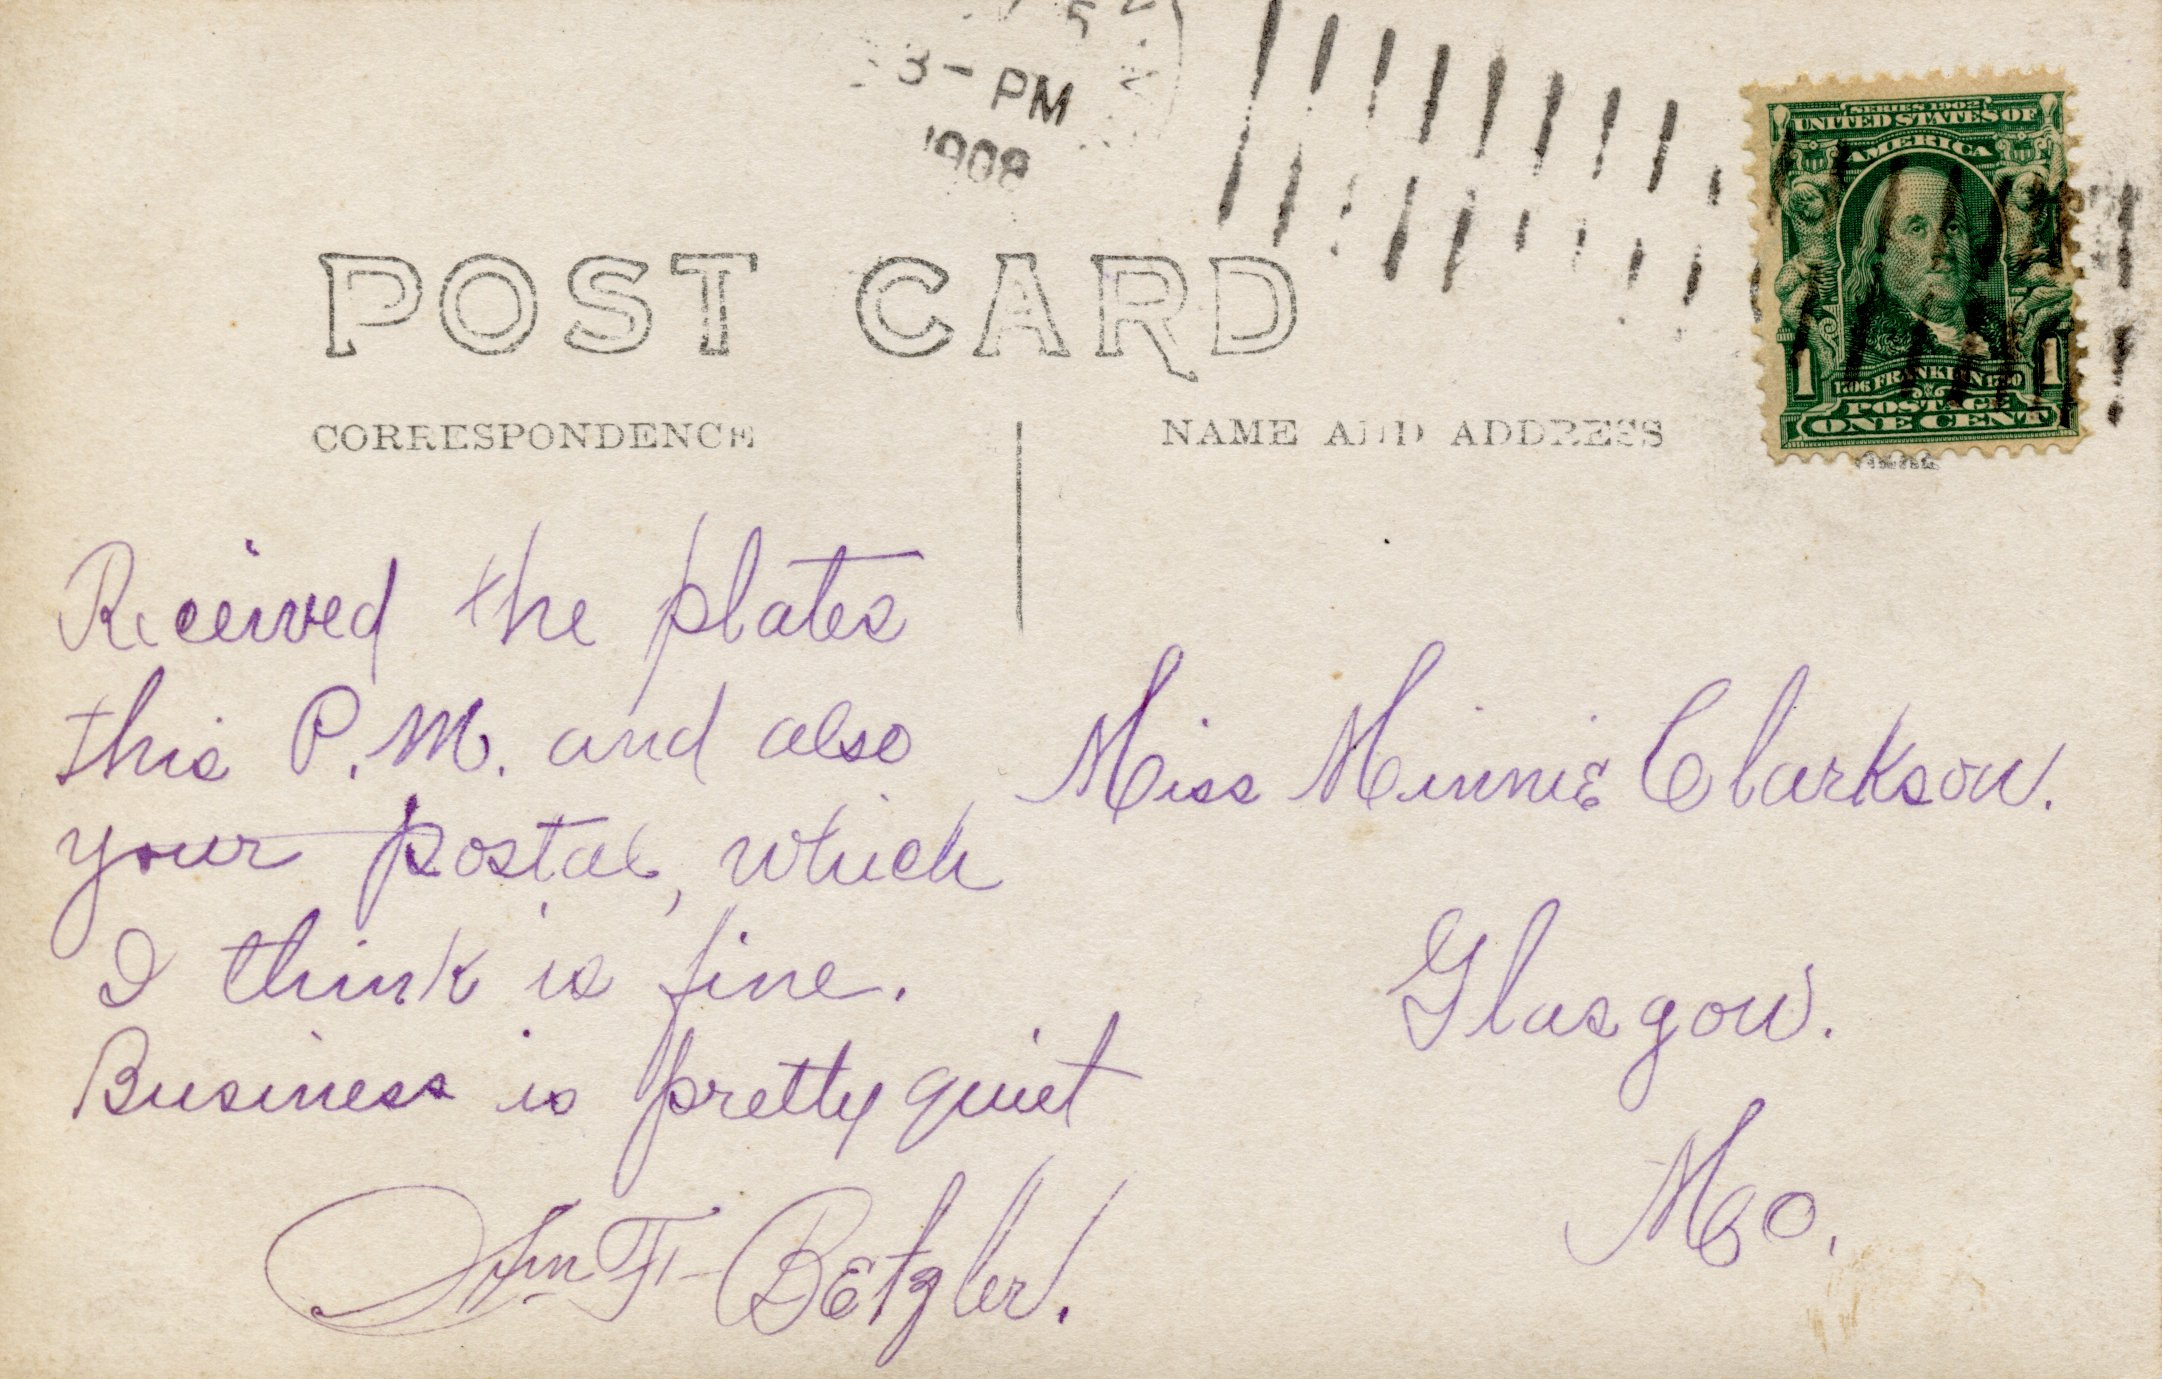 3-PM
1908
SERIES 1902
UNITED STATES OF
AMERICA
1706 FRANKLIN 1790
1 1
POSTAGE
ONE CENT
POST CARD
CORRESPONDENCE
NAME AND ADDRESS
Received the plates
this P.M. and also
your postal, which
I think is fine.
Business is pretty quiet
Wm F. Betzler.
Miss Minnie Clarkson.
Glasgow.
Mo.